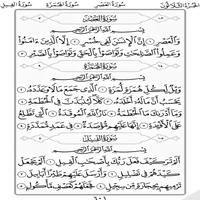 الجزء الثلاثون سورة العصر سورة الهمزة سورة الفيل
سورة العصر
بِسْمِ ٱللَّهِ ٱلرَّحْمَٰنِ ٱلرَّحِيمِ
وَٱلْعَصْرِ ١ إِنَّ ٱلْإِنسَٰنَ لَفِى خُسْرٍ ٢ إِلَّا ٱلَّذِينَ ءَامَنُوا۟
وَعَمِلُوا۟ ٱلصَّٰلِحَٰتِ وَتَوَاصَوْا۟ بِٱلْحَقِّ وَتَوَاصَوْا۟ بِٱلصَّبْرِ ٣
سورة الهمزة
بِسْمِ ٱللَّهِ ٱلرَّحْمَٰنِ ٱلرَّحِيمِ
وَيْلٌ لِّكُلِّ هُمَزَةٍ لُّمَزَةٍ ١ ٱلَّذِى جَمَعَ مَالًا وَعَدَّدَهُۥ ٢ يَحْسَبُ
أَنَّ مَالَهُۥٓ أَخْلَدَهُۥ ٣ كَلَّا لَيُنۢبَذَنَّ فِى ٱلْحُطَمَةِ ٤ وَمَآ أَدْرَىٰكَ
مَا ٱلْحُطَمَةُ ٥ نَارُ ٱللَّهِ ٱلْمُوقَدَةُ ٦ ٱلَّتِى تَطَّلِعُ عَلَى
ٱلْأَفْـِٔدَةِ ٧ إِنَّهَا عَلَيْهِم مُّؤْصَدَةٌ ٨ فِى عَمَدٍ مُّمَدَّدَةٍۭ ٩
سورة الفيل
بِسْمِ ٱللَّهِ ٱلرَّحْمَٰنِ ٱلرَّحِيمِ
أَلَمْ تَرَ كَيْفَ فَعَلَ رَبُّكَ بِأَصْحَٰبِ ٱلْفِيلِ ١ أَلَمْ يَجْعَلْ
كَيْدَهُمْ فِى تَضْلِيلٍ ٢ وَأَرْسَلَ عَلَيْهِمْ طَيْرًا أَبَابِيلَ ٣
تَرْمِيهِم بِحِجَارَةٍ مِّن سِجِّيلٍ ٤ فَجَعَلَهُمْ كَعَصْفٍ مَّأْكُولٍۭ ٥
٦٠١